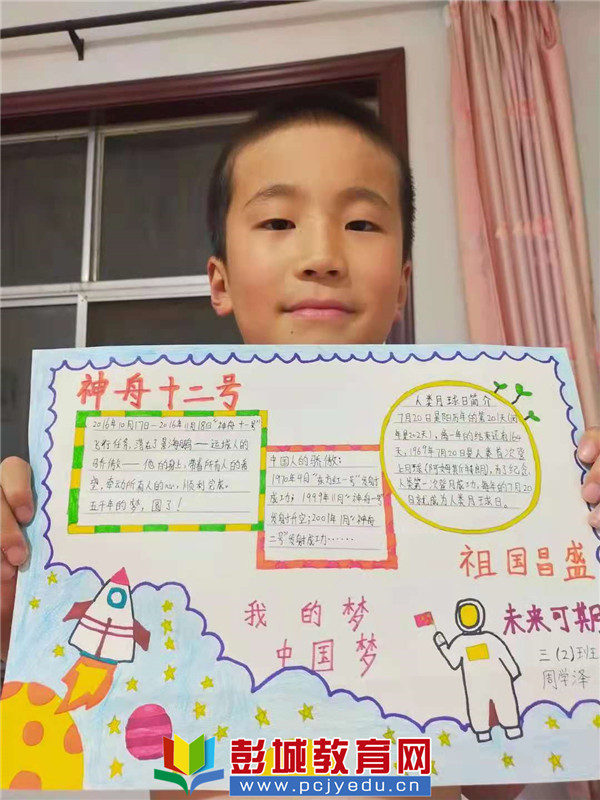 神舟十二号
2016年10月17日—2016年11月18日"神舟十一号"
飞行任务,落去了景海鹏——延续人的
骄傲——他的身上,带着所有人的希
望,牵动所有人的心,顺利会成。
五千年的梦,圆了!
中国人的骄傲:
1970年4月"东方红一号"发射
成功;1999年11月"神舟一号"
发射升空;2001年1月"神舟
二号"发射成功……
人类月球日简介
7月20日是阳历年的第201天(闰
年是202天),离一年的结束还有164
天,1969年7月20日是人类首次登
上月球
为了纪念
人类第一次登月成功,每年的7月20
日就成为人类月球日。
祖国昌盛
未来可期
我的梦
中国梦
三(2)班
周学泽
彭城教育网
www.pcjyedu.cn